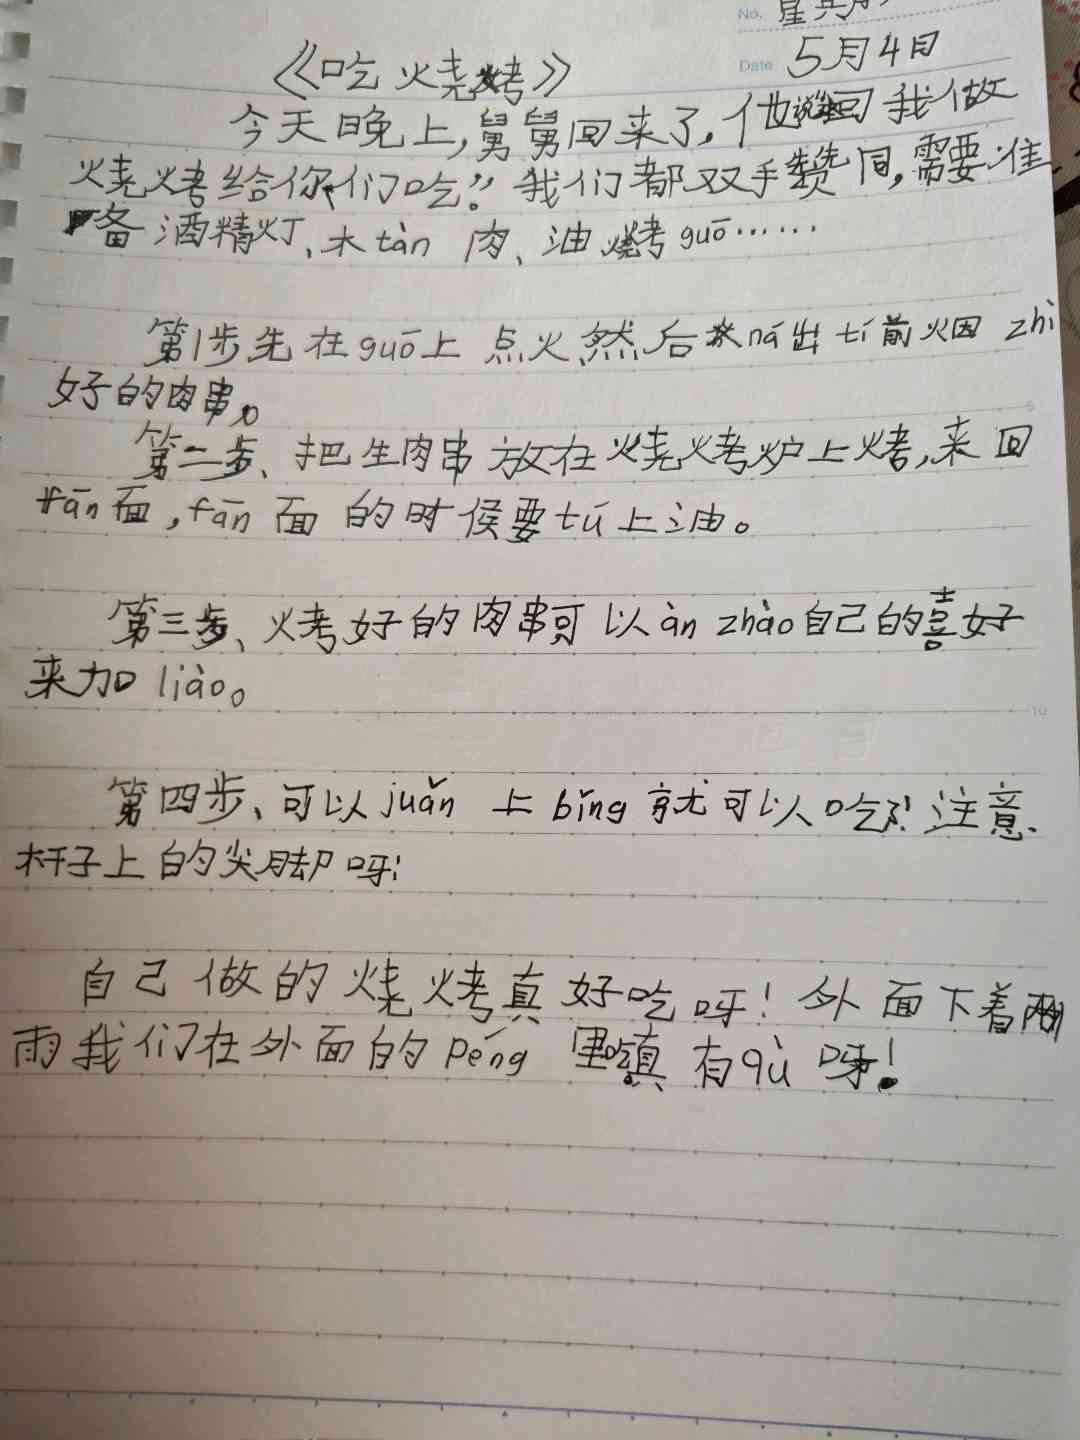 No. 星其月
Date 5月4日
《吃烧烤》
今天晚上,舅舅回来了,他说我做
烧烤给你们吃!”我们都双手赞同,需要准
备酒精灯、木tàn 肉、油烧烤guō……
第1步先在guō上 点火,然后ná出tí前烟 zhì
好的肉串。
第二步、把生肉串放在烧烤炉上烤,来回
fān面,fān面的时候要tú上油。
第三步、烤好的肉串可以àn zhào自己的喜好
来加liào。
第四步、可以juǎn 上bǐng就可以吃了!注意
杆子上的尖脚呀!
自己做的烧烤真好吃呀!外面下着
雨我们在外面的Péng 里吃真有qù呀!
5
10